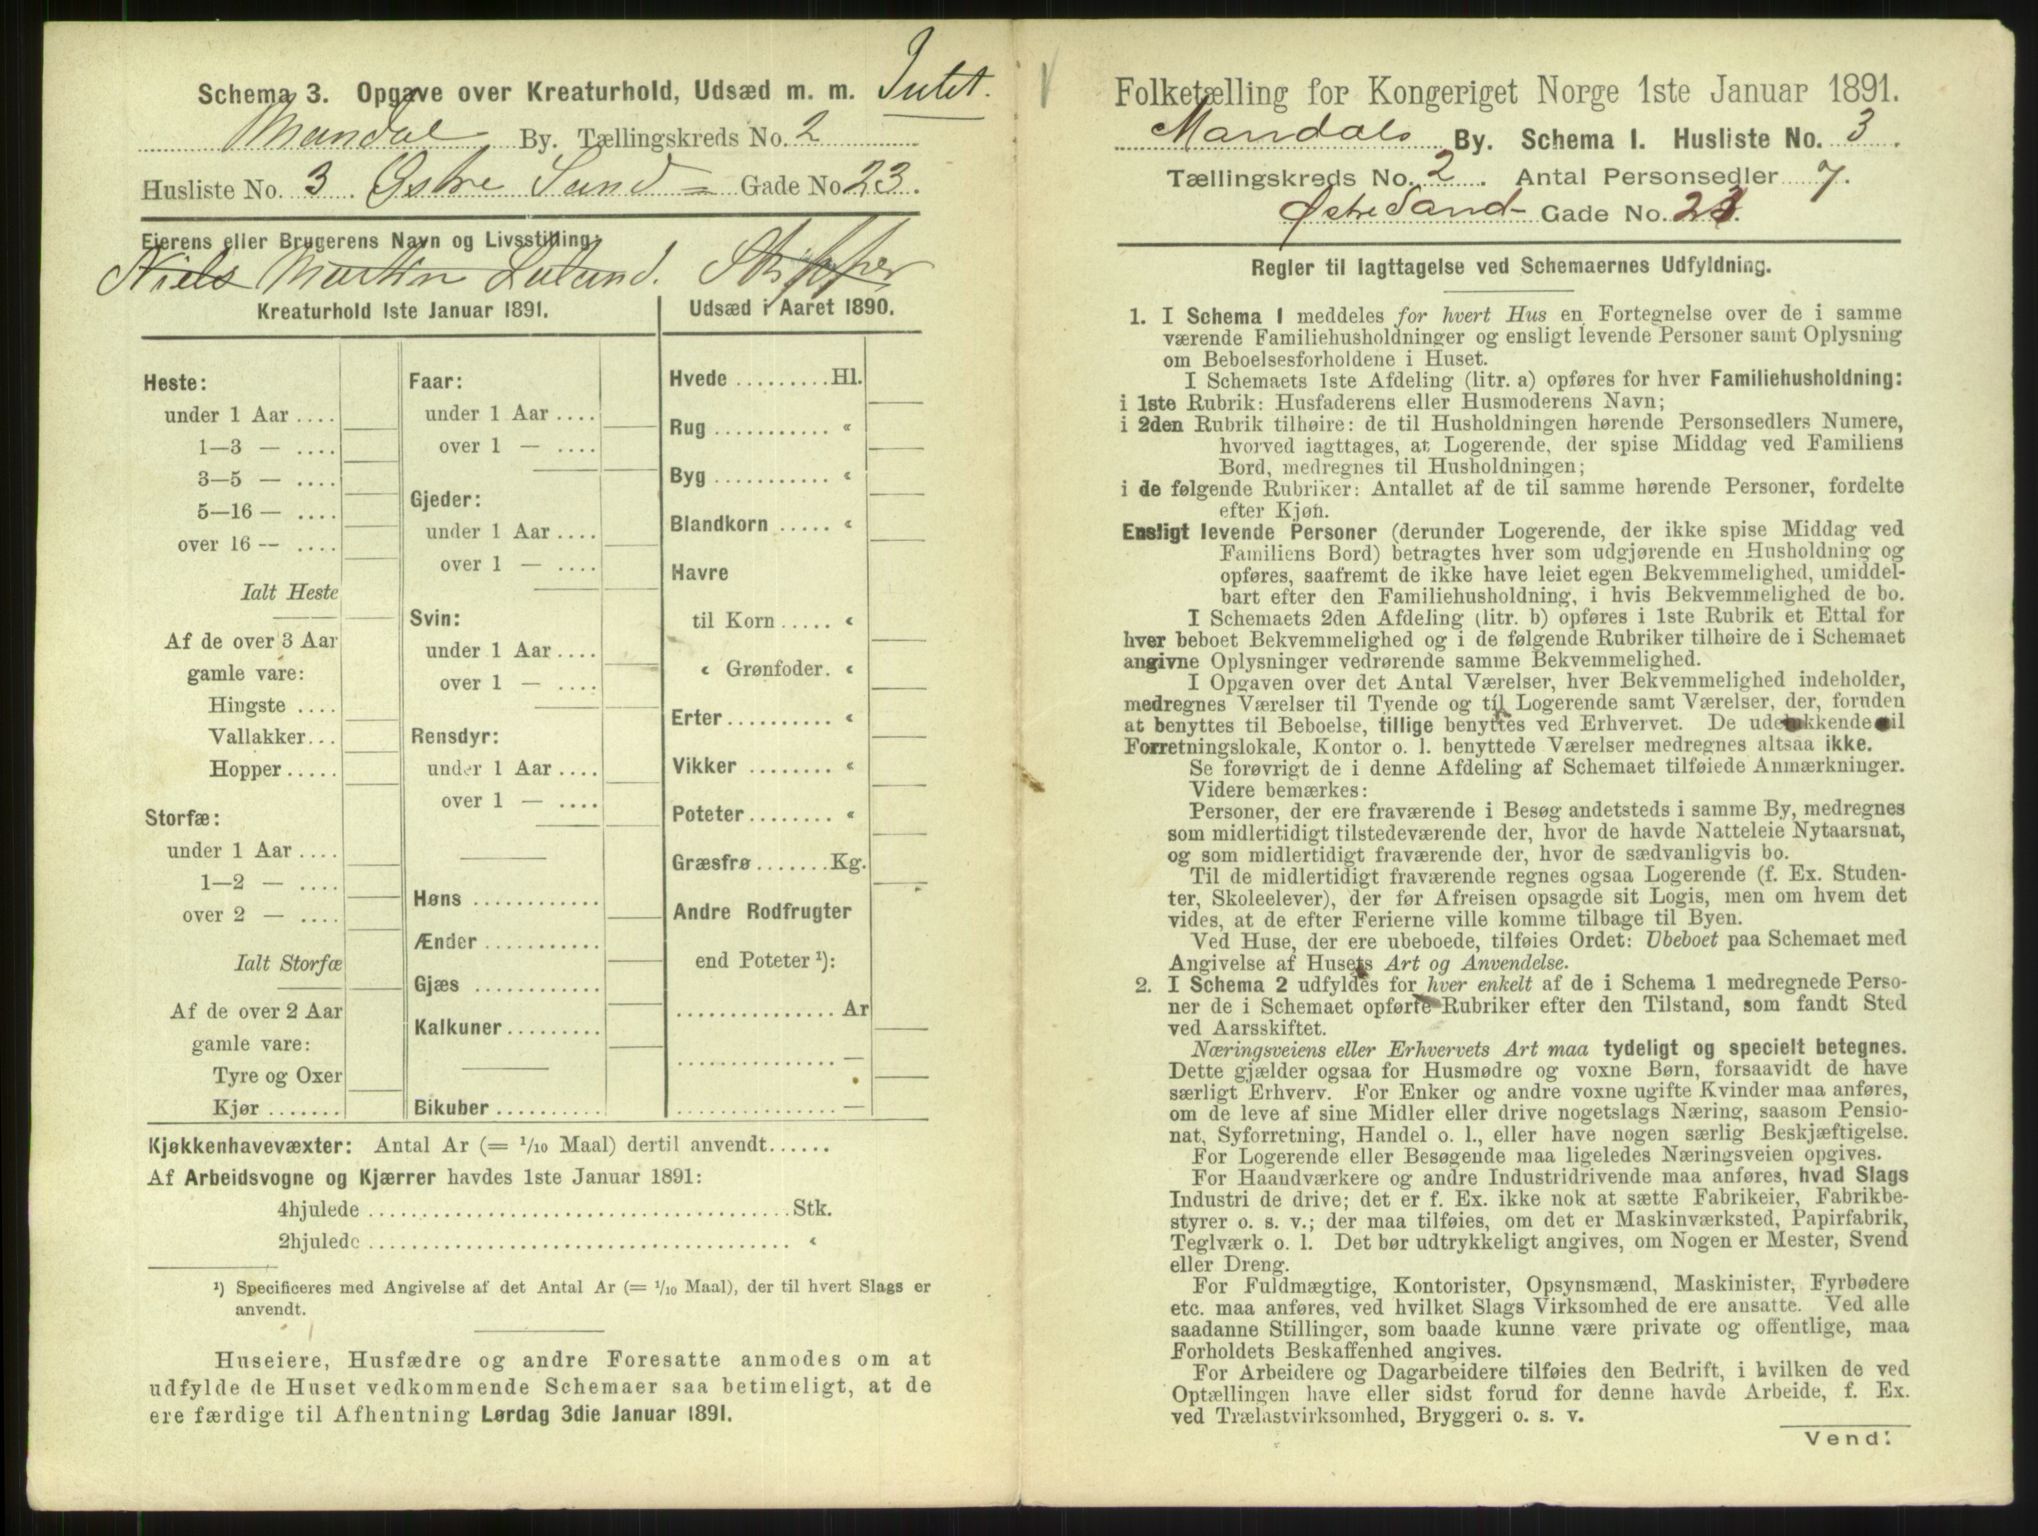 Schema 3. Opgave over Kreaturhold, Udsæd m. m. Intet.
Mandal By. Tællingskreds No. 2
Husliste No. 3. Østre Sund = Gade No 23.
Eierens eller Brugerens Navn og Livsstilling:
Niels Martin Luland. Skipper
Kreaturhold 1ste Januar 1891.
Heste:
under 1 Aar ....
1—3 — ....
3—5 — ....
5—16 — ....
over 16 — ....
Ialt Heste
Af de over 3 Aar
gamle vare:
Hingste ....
Vallakker...
Hopper.....
Storfæ:
under 1 Aar ....
1—2 — ....
over 2 — ....
Ialt Storfæ
Af de over 2 Aar
gamle vare:
Tyre og Oxer
Kjør .......
Faar:
under 1 Aar ....
over 1 — ....
Gjeder:
under 1 Aar ....
over 1 — ....
Svin:
under 1 Aar ....
over 1 — ....
Rensdyr:
under 1 Aar ....
over 1 — ....
Høns ............
Ænder ...........
Gjæs ............
Kalkuner.........
Bikuber ..........
Udsæd i Aaret 1890.
Hvede .........Hl.
Rug ........... «
Byg ........... «
Blandkorn ..... «
Havre
til Korn ..... «
« Grønfoder. «
Erter.......... «
Vikker ........ «
Poteter........ «
Græsfrø .......Kg.
Andre Rodfrugter
end Poteter ¹):
...............Ar
............... —
............... —
Kjøkkenhavevæxter: Antal Ar (= 1/10 Maal) dertil anvendt......
Af Arbeidsvogne og Kjærrer havdes 1ste Januar 1891:
4hjulede ........................................Stk.
2hjulede ........................................ «
¹) Specificeres med Angivelse af det Antal Ar (= 1/10 Maal), der til hvert Slags er
anvendt.
Huseiere, Husfædre og andre Foresatte anmodes om at
udfylde de Huset vedkommende Schemaer saa betimeligt, at de
ere færdige til Afhentning Lørdag 3die Januar 1891.
Folketælling for Kongeriget Norge 1ste Januar 1891.
Mandals By. Schema I. Husliste No. 3.
Tællingskreds No. 2. Antal Personsedler 7.
Østre Sand Gade No. 23.
Regler til Iagttagelse ved Schemaernes Udfyldning.
1. I Schema 1 meddeles for hvert Hus en Fortegnelse over de i samme
værende Familiehusholdninger og ensligt levende Personer samt Oplysning
om Beboelsesforholdene i Huset.
I Schemaets 1ste Afdeling (litr. a) opføres for hver Familiehusholdning:
i 1ste Rubrik: Husfaderens eller Husmoderens Navn;
i 2den Rubrik tilhøire: de til Husholdningen hørende Personsedlers Numere,
hvorved iagttages, at Logerende, der spise Middag ved Familiens
Bord, medregnes til Husholdningen;
i de følgende Rubriker: Antallet af de til samme hørende Personer, fordelte
efter Kjøn.
Ensligt levende Personer (derunder Logerende, der ikke spise Middag ved
Familiens Bord) betragtes hver som udgjørende en Husholdning og
opføres, saafremt de ikke have leiet egen Bekvemmelighed, umiddel-
bart efter den Familiehusholdning, i hvis Bekvemmelighed de bo.
I Schemaets 2den Afdeling (litr. b) opføres i 1ste Rubrik et Ettal for
hver beboet Bekvemmelighed og i de følgende Rubriker tilhøire de i Schemaet
angivne Oplysninger vedrørende samme Bekvemmelighed.
I Opgaven over det Antal Værelser, hver Bekvemmelighed indeholder,
medregnes Værelser til Tyende og til Logerende samt Værelser, der, foruden
at benyttes til Beboelse, tillige benyttes ved Erhvervet. De udelukkende til
Forretningslokale, Kontor o. l. benyttede Værelser medregnes altsaa ikke.
Se forøvrigt de i denne Afdeling af Schemaet tilføiede Anmærkninger.
Videre bemærkes:
Personer, der ere fraværende i Besøg andetsteds i samme By, medregnes
som midlertidigt tilstedeværende der, hvor de havde Natteleie Nytaarsnat,
og som midlertidigt fraværende der, hvor de sædvanligvis bo.
Til de midlertidigt fraværende regnes ogsaa Logerende (f. Ex. Studen-
ter, Skoleelever), der før Afreisen opsagde sit Logis, men om hvem det
vides, at de efter Ferierne ville komme tilbage til Byen.
Ved Huse, der ere ubeboede, tilføies Ordet: Ubeboet paa Schemaet med
Angivelse af Husets Art og Anvendelse.
2. I Schema 2 udfyldes for hver enkelt af de i Schema 1 medregnede Perso-
ner de i Schemaet opførte Rubriker efter den Tilstand, som fandt Sted
ved Aarsskiftet.
Næringsveiens eller Erhvervets Art maa tydeligt og specielt betegnes.
Dette gjælder ogsaa for Husmødre og voxne Børn, forsaavidt de have
særligt Erhverv. For Enker og andre voxne ugifte Kvinder maa anføres,
om de leve af sine Midler eller drive nogetslags Næring, saasom Pensio-
nat, Syforretning, Handel o. l., eller have nogen særlig Beskjæftigelse.
For Logerende eller Besøgende maa ligeledes Næringsveien opgives.
For Haandværkere og andre Industridrivende maa anføres, hvad Slags
Industri de drive; det er f. Ex. ikke nok at sætte Fabrikeier, Fabrikbe-
styrer o. s. v.; der maa tilføies, om det er Maskinværksted, Papirfabrik,
Teglværk o. l. Det bør udtrykkeligt angives, om Nogen er Mester, Svend
eller Dreng.
For Fuldmægtige, Kontorister, Opsynsmænd, Maskinister, Fyrbødere
etc. maa anføres, ved hvilket Slags Virksomhed de ere ansatte. Ved alle
saadanne Stillinger, som baade kunne være private og offentlige, maa
Forholdets Beskaffenhed angives.
For Arbeidere og Dagarbeidere tilføies den Bedrift, i hvilken de ved
Optællingen have eller sidst forud for denne havde Arbeide, f. Ex.
ved Trælastvirksomhed, Bryggeri o. s. v.
Vend!